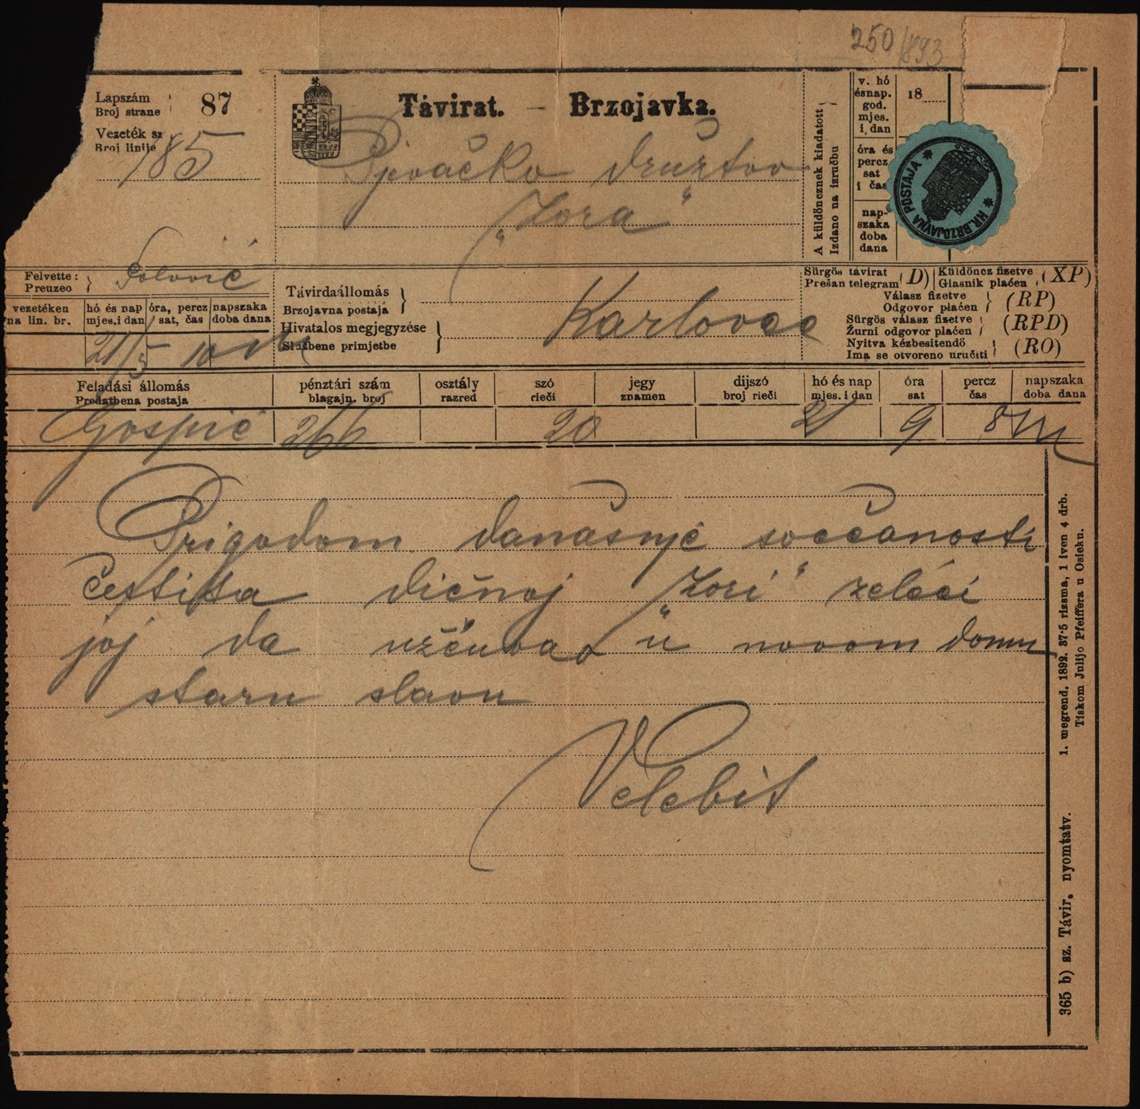 250/893
Lapszám
Broj strane
87
Vezeték sz
Broj linije
185
Távirat. – Brzojavka.
Pjevačko družtvo
„Zora“
A küldöncznek kiadatott
Izdano na izručbu
v. hó
ésnap.
god.
mjes.
i. dan
18
óra és
percz
sat
i čas
nap-
szaka
doba
dana
HR. BRZOJAVNA POSTAJA
Felvette:
Preuzeo
vezetéken
na lin. br.
hó és nap
mjes. i dan
óra, percz
sat, čas
napszaka
doba dana
21/5 10
Távirdaállomás
Brzojavna postaja
Hivatalos megjegyzése
Službene primjetbe
Karlovac
Sürgös távirat
Prešan telegram (D)
Küldöncz fizetve
Glasnik plaćen (XP)
Válasz fizetve
Odgovor plaćen (RP)
Sürgös válasz fizetve
Žurni odgovor plaćen (RPD)
Nyitva kézbesitendö
Ima se otvoreno uručiti (RO)
Feladási állomás
Predatbena postaja
pénztári szám
blagajn. broj
osztály
razred
szó
rieči
jegy
znamen
dijszó
broj rieči
hó és nap
mjes. i dan
óra
sat
percz
čas
napszaka
doba dana
Gospić 266 20 21 9 8
Prigodom današnje svečanosti
čestita dičnoj „Zori“ želeći
joj da uščuva u novom domu
staru slavu
Velebit
1. megrend. 1892. 37·5 rizsma, 1 iven 4 drb.
Tiskom Julijo Pfeiffera u Osieku.
365 b) sz. Távir. nyomtatv.